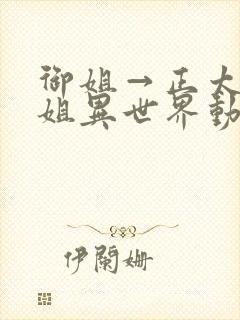 御姐→正太
姐異世界動
伊蘭姍